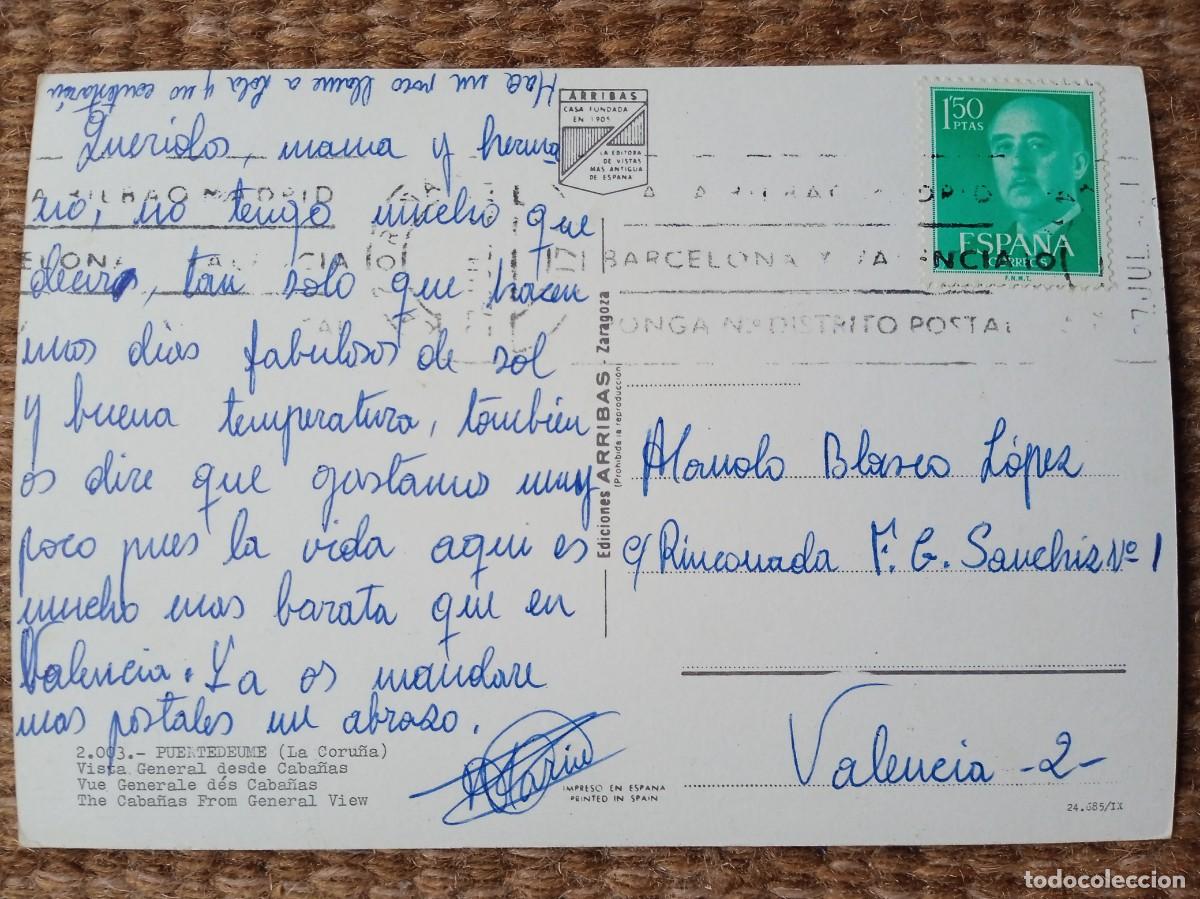 Hace un poco llame a Lola y no contestarón
Queridos, mama y herma
no, no tengo mucho que
deciros, tan solo que hacen
unos dias fabulosos de sol
y buena temperatura, también
os dire que gastamos muy
poco pues la vida aqui es
mucho mas barata que en
Valencia. Ya os mandare
mas postales un abrazo.
2.093.- PUENTEDEUME (La Coruña)
Vista General desde Cabañas
Vue Generale dés Cabañas
The Cabañas From General View
ARRIBAS
CASA FUNDADA
EN 1905
LA EDITORA
DE VISTAS
MAS ANTIGUA
DE ESPAÑA
Ediciones ARRIBAS - Zaragoza
(Prohibida la reproducción)
IMPRESO EN ESPAÑA
PRINTED IN SPAIN
1'50
PTAS
ESPAÑA
CORREOS
F.N.M.T.
BILBAO MADRID
BARCELONA Y VALENCIA
PONGA Nº DISTRITO POSTAL
JUL
Manolo Blasco López
c/ Rinconada F. G. Sanchiz nº 1
Valencia -2-
24.685/IX
todocoleccion